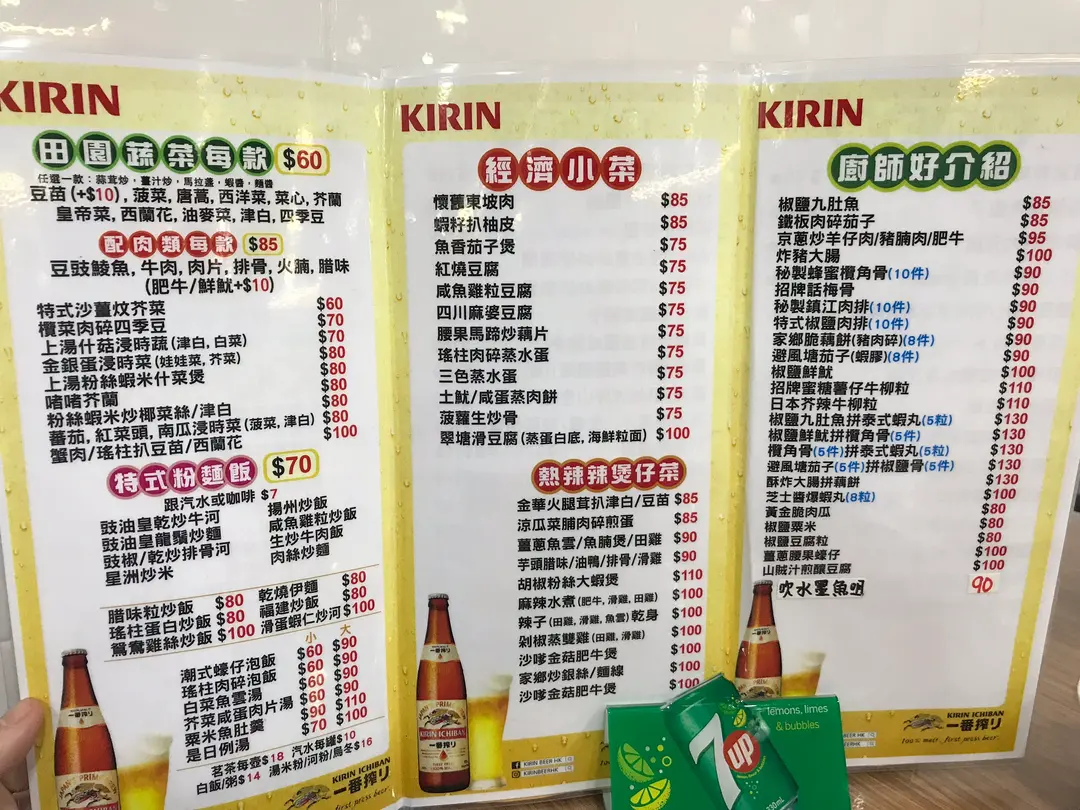 KIRIN
田園蔬菜每款 $60
任選一款：蒜茸炒，薑汁炒，馬拉盞，蝦醬，麵醬
豆苗(+$10), 菠菜, 唐蒿, 西洋菜, 菜心, 芥蘭
皇帝菜, 西蘭花, 油麥菜, 津白, 四季豆
配肉類每款 $85
豆豉鯪魚, 牛肉, 肉片, 排骨, 火腩, 腊味
(肥牛/鮮魷+$10)
特式沙薑炆芥菜 $60
欖菜肉碎四季豆 $70
上湯什菇浸時蔬(津白, 白菜) $70
金銀蛋浸時菜(娃娃菜, 芥菜) $80
上湯粉絲蝦米什菜煲 $80
啫啫芥蘭 $80
粉絲蝦米炒椰菜絲/津白 $80
蕃茄, 紅菜頭, 南瓜浸時菜(菠菜, 津白) $80
蟹肉/瑤柱扒豆苗/西蘭花 $100
特式粉麵飯 $70
跟汽水或咖啡 $7
豉油皇乾炒牛河 揚州炒飯
豉油皇龍鬚炒麵 咸魚雞粒炒飯
豉椒/乾炒排骨河 生炒牛肉飯
星洲炒米 肉絲炒麵
腊味粒炒飯 $80 乾燒伊麵 $80
瑤柱蛋白炒飯 $80 福建炒飯 $80
鴛鴦雞絲炒飯 $100 滑蛋蝦仁炒河 $100
小 大
潮式蠔仔泡飯 $60 $90
瑤柱肉碎泡飯 $60 $90
白菜魚雲湯 $60 $90
芥菜咸蛋肉片湯 $60 $90
粟米魚肚羹 $90 $110
是日例湯 $70 $100
茗茶每壺$18 汽水每罐$10
白飯/粥$14 湯米粉/河粉/烏冬$16
KIRIN ICHIBAN
一番搾り
first press beer.
KIRIN
經濟小菜
懷舊東坡肉 $85
蝦籽扒柚皮 $85
魚香茄子煲 $75
紅燒豆腐 $75
咸魚雞粒豆腐 $75
四川麻婆豆腐 $75
腰果馬蹄炒藕片 $75
瑤柱肉碎蒸水蛋 $75
三色蒸水蛋 $75
土魷/咸蛋蒸肉餅 $75
菠蘿生炒骨 $75
翠塘滑豆腐(蒸蛋白底, 海鮮粒面) $100
熱辣辣煲仔菜
金華火腿茸扒津白/豆苗 $85
涼瓜菜脯肉碎煎蛋 $85
薑蔥魚雲/魚腩煲/田雞 $90
芋頭腊味/油鴨/排骨/滑雞 $90
胡椒粉絲大蝦煲 $110
麻辣水煮(肥牛, 滑雞, 田雞) $100
辣子(田雞, 滑雞, 魚雲)乾身 $100
剁椒蒸雙雞(田雞, 滑雞) $100
沙嗲金菇肥牛煲 $100
家鄉炒銀絲/麵線 $100
沙嗲金菇肥牛煲 $100
KIRIN ICHIBAN
一番搾り
KIRIN BEER HK
KIRINBEERHK
KIRIN
廚師好介紹
椒鹽九肚魚 $85
鐵板肉碎茄子 $85
京蔥炒羊仔肉/豬腩肉/肥牛 $95
炸豬大腸 $100
秘製蜂蜜欖角骨(10件) $90
招牌話梅骨 $90
秘製鎮江肉排(10件) $90
特式椒鹽肉排(10件) $90
家鄉脆藕餅(豬肉碎)(8件) $90
避風塘茄子(蝦膠)(8件) $90
椒鹽鮮魷 $100
招牌蜜糖薯仔牛柳粒 $110
日本芥辣牛柳粒 $110
椒鹽九肚魚拼泰式蝦丸(5粒) $130
椒鹽鮮魷拼欖角骨(5件) $130
欖角骨(5件)拼泰式蝦丸(5粒) $130
避風塘茄子(5件)拼椒鹽骨(5件) $130
酥炸大腸拼藕餅 $130
芝士醬爆蝦丸(8粒) $100
黃金脆肉瓜 $80
椒鹽粟米 $80
椒鹽豆腐粒 $80
薑蔥腰果蠔仔 $100
山賊汁煎釀豆腐 $100
吹水墨魚咀 90
KIRIN ICHIBAN
一番搾り
100% malt. first press beer.
7UP
lemons, limes
& bubbles
330ml